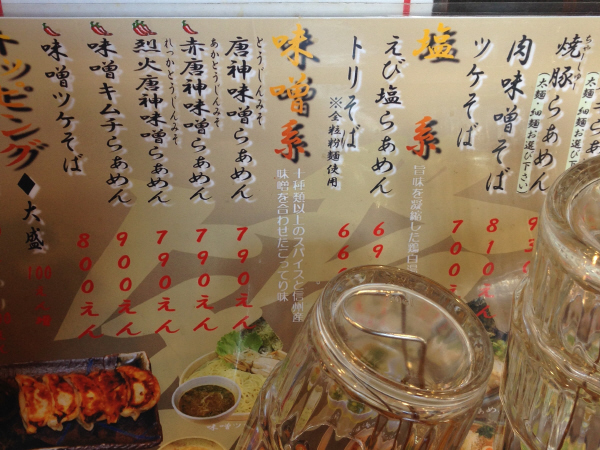 らぁめん
焼豚らぁめん
ちゃーしゅー
(太麺・細麺お選び下さい)
(太麺・細麺お選び下さい)
肉味噌そば
810えん
ツケそば
700えん
塩系
旨味を凝縮した鶏白湯
えび塩らぁめん
69
トリそば
※全粒粉麺使用
66
味噌系
十種類以上のスパイスと信州産
味噌を合わせたこってり味
とうじんみそ
唐神味噌らぁめん
790えん
あかとうじんみそ
赤唐神味噌らぁめん
790えん
れっかとうじんみそ
烈火唐神味噌らぁめん
790えん
味噌キムチらぁめん
900えん
味噌ツケそば
800えん
トッピング◆
大盛
100